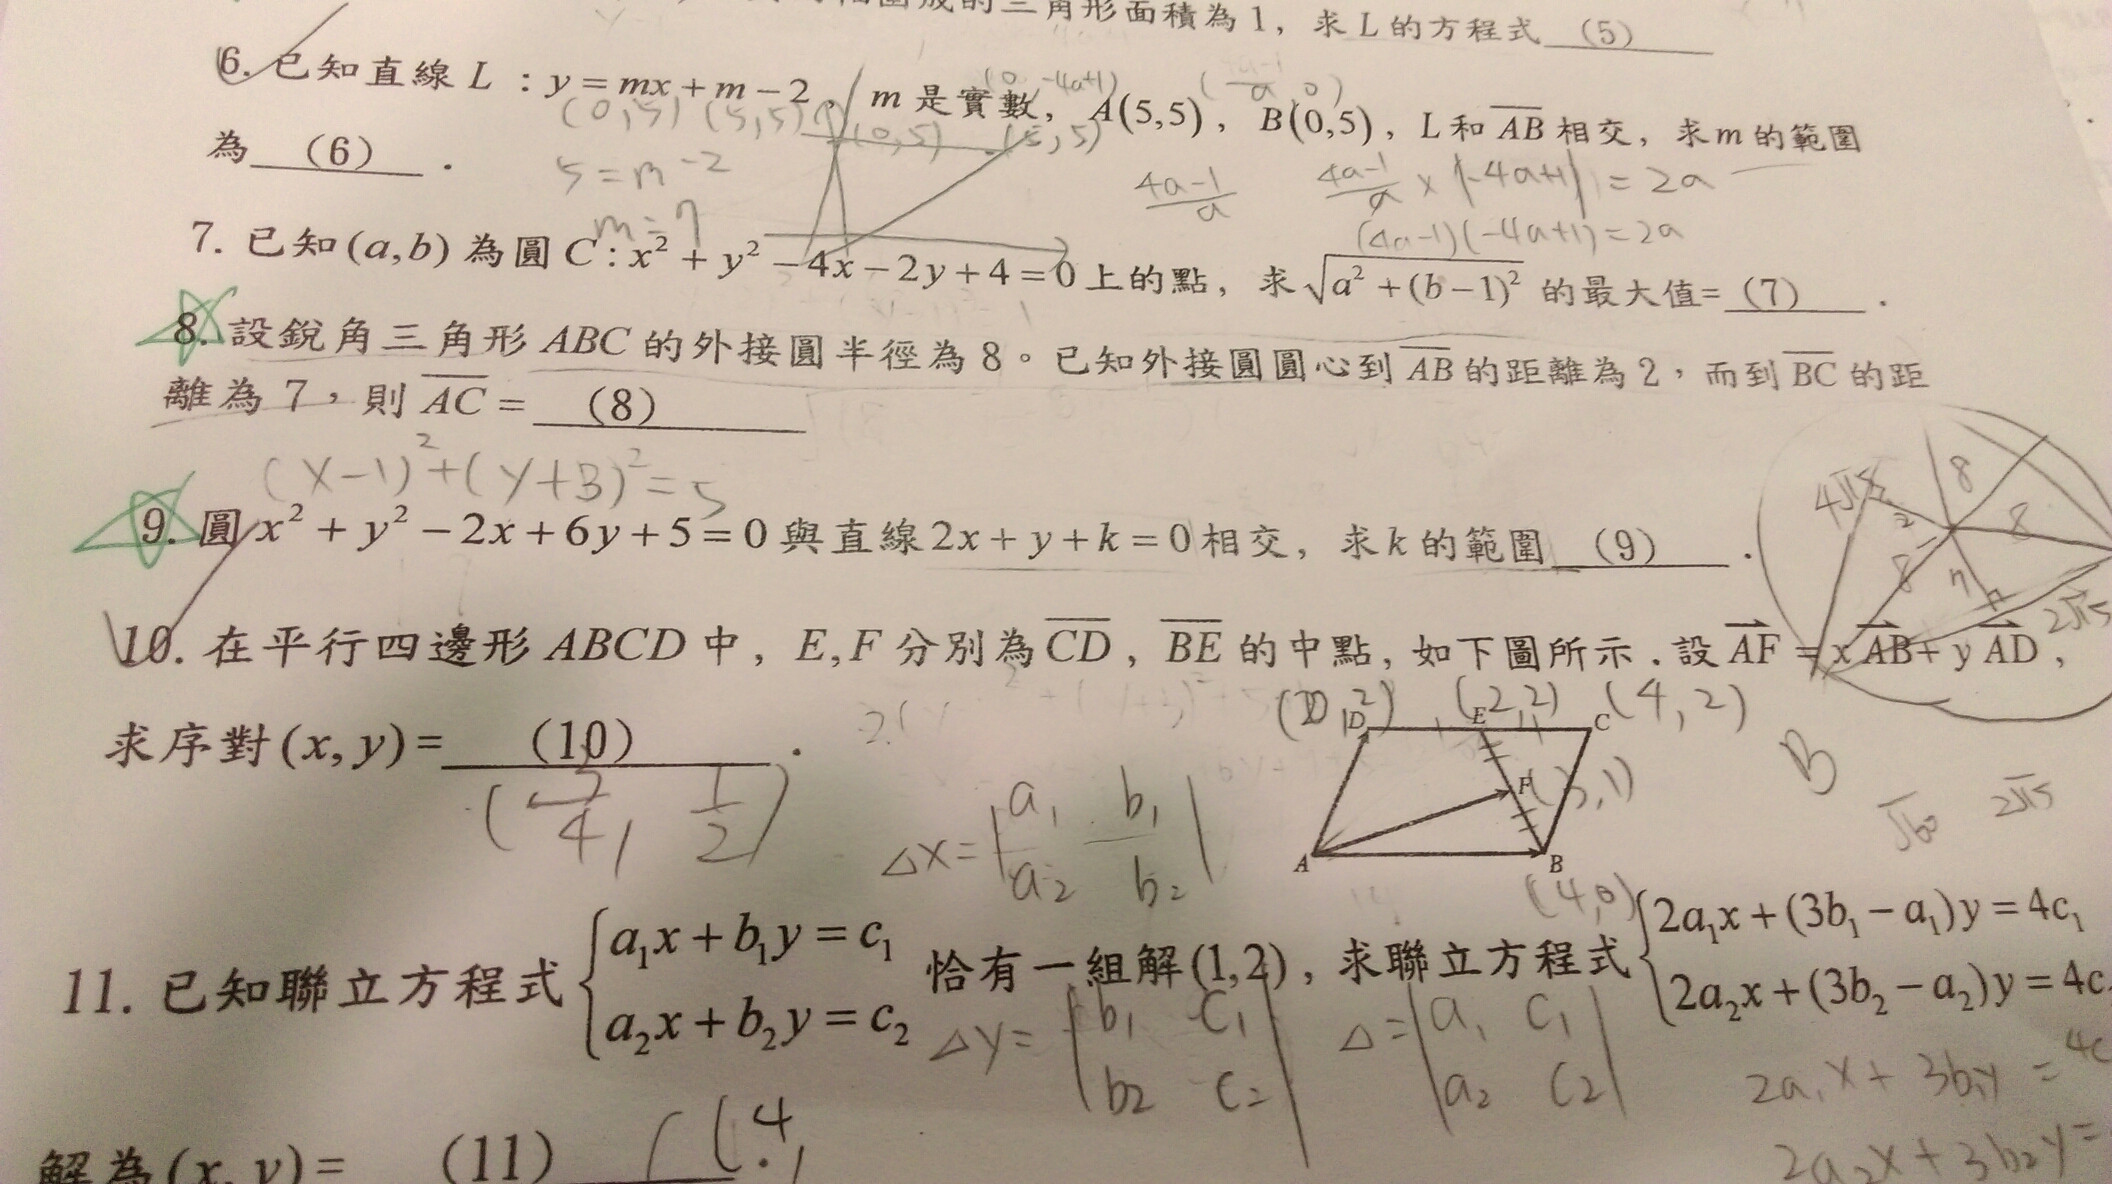 三角形面積為1，求L的方程式 (5)
6. 已知直線 L：y = mx + m − 2，m 是實數，A(5,5)，B(0,5)，L和 AB 相交，求m的範圍
(0, -4a+1)
(0,5) (5,5)
(0,5) (5,5)
為 (6) .
5 = m - 2
4a-1/a
4a-1/a × |-4a+1| = 2a
m = 7
(4a-1)(-4a+1) = 2a
7. 已知(a,b)為圓 C : x² + y² − 4x − 2y + 4 = 0上的點，求√(a² + (b−1)²) 的最大值= (7) .
8. 設銳角三角形 ABC 的外接圓半徑為 8。已知外接圓圓心到 AB 的距離為 2，而到 BC 的距
離為 7，則 AC = (8)
(x-1)² + (y+3)² = 5
9. 圓 x² + y² − 2x + 6y + 5 = 0 與直線 2x + y + k = 0 相交，求k的範圍 (9) .
8
4√15
2
8
8
7
2√15
10. 在平行四邊形 ABCD 中，E,F 分別為 CD，BE 的中點，如下圖所示．設 AF = x AB + y AD，
(2,2) (4,2)
D E C
求序對(x, y) = (10) .
F (3,1)
B
√60 2√15
A B
(4,0)
Δx = |a₁ b₁
a₂ b₂|
11. 已知聯立方程式 { a₁x + b₁y = c₁
a₂x + b₂y = c₂
恰有一組解(1,2)，求聯立方程式 { 2a₁x + (3b₁ − a₁)y = 4c₁
2a₂x + (3b₂ − a₂)y = 4c
Δy = |b₁ c₁
b₂ c₂|
Δ = |a₁ c₁
a₂ c₂|
2a₁x + 3b₁y = 4c
2a₂x + 3b₂y =
解為(x, y) = (11)
(4,